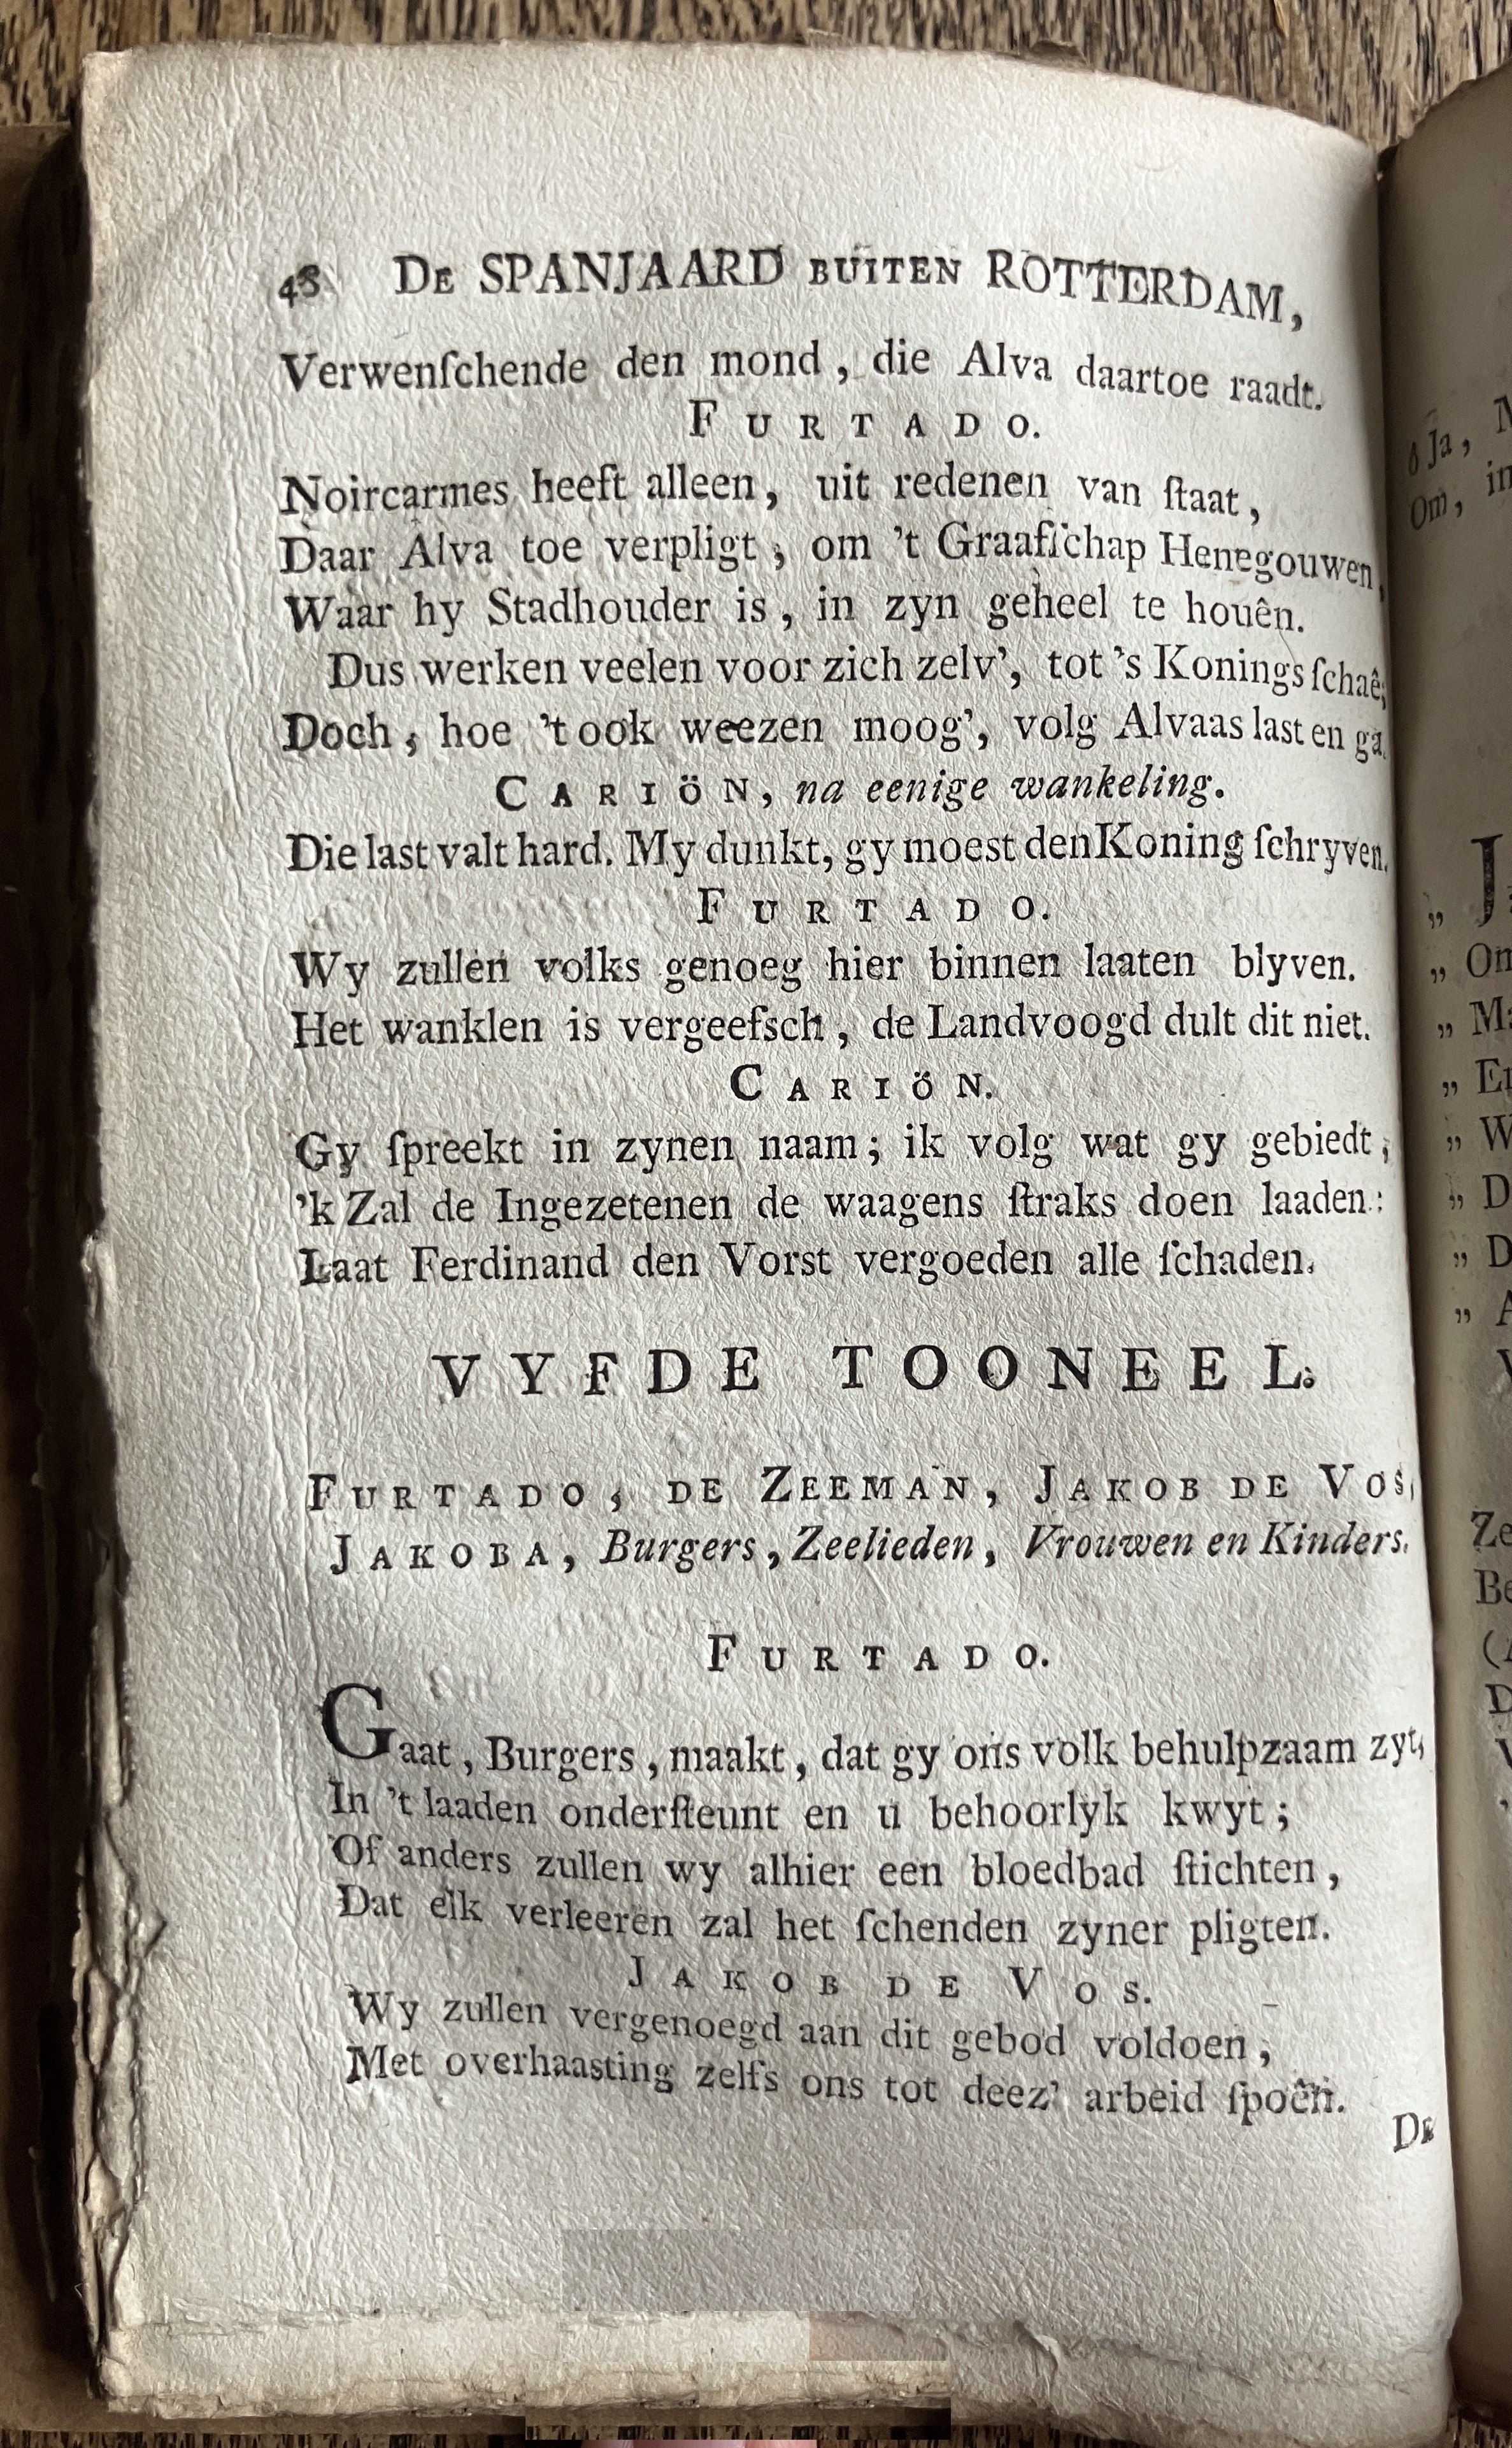 48 De SPANJAARD BUITEN ROTTERDAM,
Verwenſchende den mond, die Alva daartoe raadt.
FURTADO.
Noircarmes heeft alleen, uit redenen van ſtaat,
Daar Alva toe verpligt, om 't Graafſchap Henegouwen,
Waar hy Stadhouder is, in zyn geheel te houên.
Dus werken veelen voor zich zelv', tot 's Konings ſchaê;
Doch, hoe 't ook weezen moog', volg Alvaas last en ga.
CARIÖN, na eenige wankeling.
Die last valt hard. My dunkt, gy moest den Koning ſchryven.
FURTADO.
Wy zullen volks genoeg hier binnen laaten blyven.
Het wanklen is vergeefsch, de Landvoogd dult dit niet.
CARIÖN.
Gy ſpreekt in zynen naam; ik volg wat gy gebiedt,
'k Zal de Ingezetenen de waagens ſtraks doen laaden:
Laat Ferdinand den Vorst vergoeden alle ſchaden.
VYFDE TOONEEL.
FURTADO, DE ZEEMAN, JAKOB DE VOS,
JAKOBA, Burgers, Zeelieden, Vrouwen en Kinders.
FURTADO.
Gaat, Burgers, maakt, dat gy ons volk behulpzaam zyt,
In 't laaden onderſteunt en u behoorlyk kwyt;
Of anders zullen wy alhier een bloedbad ſtichten,
Dat elk verleeren zal het ſchenden zyner pligten.
JAKOB DE VOS.
Wy zullen vergenoegd aan dit gebod voldoen,
Met overhaasting zelfs ons tot deez' arbeid ſpoên.
DE
ô Ja,
Om,